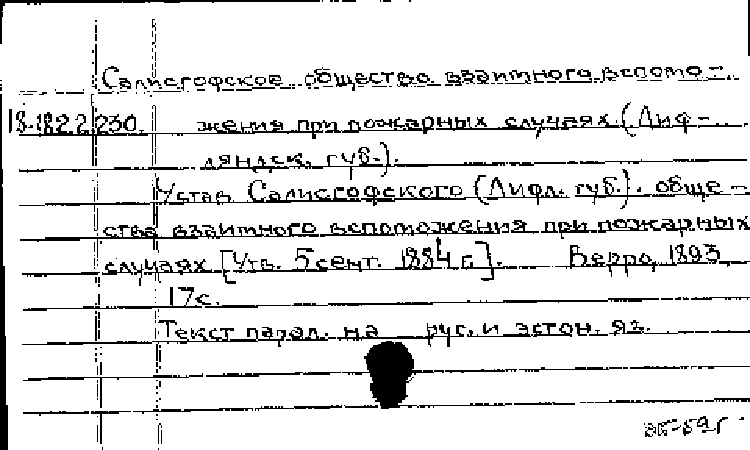 Салисгофское общество взаимного вспомо-
18.182.2.230. жения при пожарных случаях (Лиф-
ляндск. губ.).
Устав Салисгофского (Лифл. губ.). обще-
ства взаимного вспоможения при пожарных
случаях [Утв. 5 сент. 1884 г.]. Верро, 1893
17с.
Текст парал. на рус. и эстон. яз.